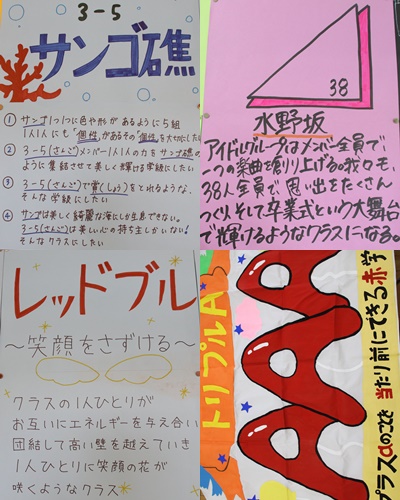 3-5
サンゴ礁
① サンゴ1つ1つに色や形があるように5組
1人1人にも"個性"があるその"個性"を大切にしたい
② 3-5(さんご)メンバー1人1人の力をサンゴ礁の
ように集結させて美しく輝ける学級にしたい
③ 3-5(さんご)で賞(しょう)をとれるような、
そんな学級にしたい
④ サンゴは美しく綺麗な海にしか生息できない。
3-5(さんご)は美しい心の持ち主しかいない!
そんなクラスにしたい
38
水野坂
アイドルグループはメンバー全員で、
一つの楽曲を創り上げる。我々も、
38人全員で、思い出をたくさん
つくり、そして卒業式という大舞台
で輝けるようなクラスになる。
レッドブル
〜笑顔をさずける〜
クラスの1人ひとりが
お互いにエネルギーを与え合い
団結して高い壁を越えていき
1人ひとりに笑顔の花が
咲くようなクラス
トリプルA
AAA
当たり前にできる赤学